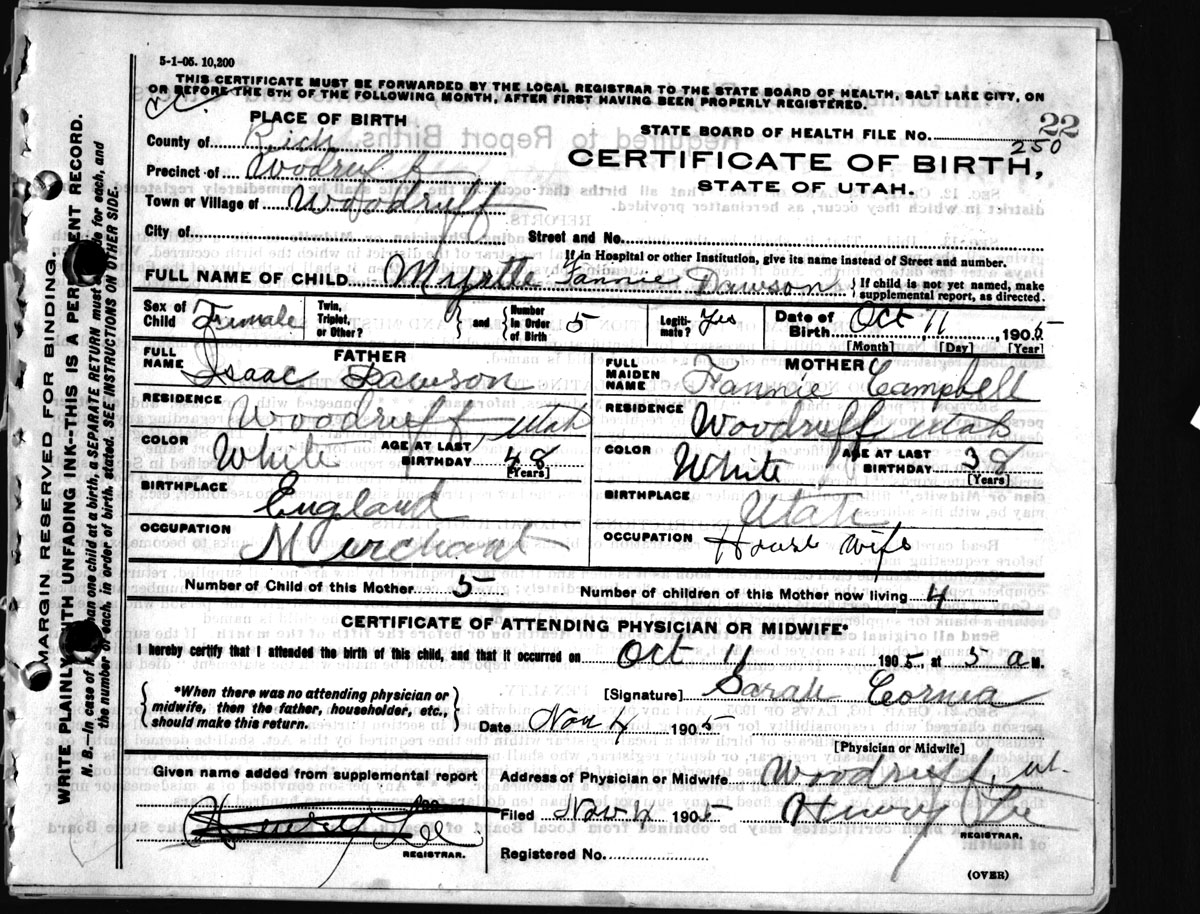 5-1-05. 10,200
THIS CERTIFICATE MUST BE FORWARDED BY THE LOCAL REGISTRAR TO THE STATE BOARD OF HEALTH, SALT LAKE CITY, ON
OR BEFORE THE 5TH OF THE FOLLOWING MONTH, AFTER FIRST HAVING BEEN PROPERLY REGISTERED.
PLACE OF BIRTH
STATE BOARD OF HEALTH FILE NO. 22
250
County of Rich
CERTIFICATE OF BIRTH,
Precinct of Woodruff
STATE OF UTAH.
Town or Village of Woodruff
City of Street and No.
If in Hospital or other Institution, give its name instead of Street and number.
FULL NAME OF CHILD Myrtle Fannie Dawson { If child is not yet named, make supplemental report, as directed.
Sex of Child Female Twin, Triplet, or Other? { and } Number in Order of Birth 5 Legitimate? Yes Date of Birth Oct 11 1905
[Month] [Day] [Year]
FATHER
FULL NAME Isaac Dawson
RESIDENCE Woodruff Utah
COLOR White AGE AT LAST BIRTHDAY 48
[Years]
BIRTHPLACE England
OCCUPATION Merchant
MOTHER
FULL MAIDEN NAME Fannie Campbell
RESIDENCE Woodruff Utah
COLOR White AGE AT LAST BIRTHDAY 38
[Years]
BIRTHPLACE Utah
OCCUPATION House Wife
Number of Child of this Mother 5 Number of children of this Mother now living 4
CERTIFICATE OF ATTENDING PHYSICIAN OR MIDWIFE.*
I hereby certify that I attended the birth of this child, and that it occurred on Oct 11 1905, at 5 a M.
{ *When there was no attending physician or
midwife, then the father, householder, etc.,
should make this return. }
[Signature] Sarah Cornia
Date Nov 4 1905
[Physician or Midwife]
Given name added from supplemental report
190
Henry Lee
REGISTRAR.
Address of Physician or Midwife Woodruff ut.
Filed Nov 4 1905 Henry Lee
REGISTRAR.
Registered No.
(OVER)
MARGIN RESERVED FOR BINDING.
WRITE PLAINLY WITH UNFADING INK--THIS IS A PERMANENT RECORD.
N. B.--In case of more than one child at a birth, a SEPARATE RETURN must be made for each, and
the number of each, in order of birth, stated. SEE INSTRUCTIONS ON OTHER SIDE.